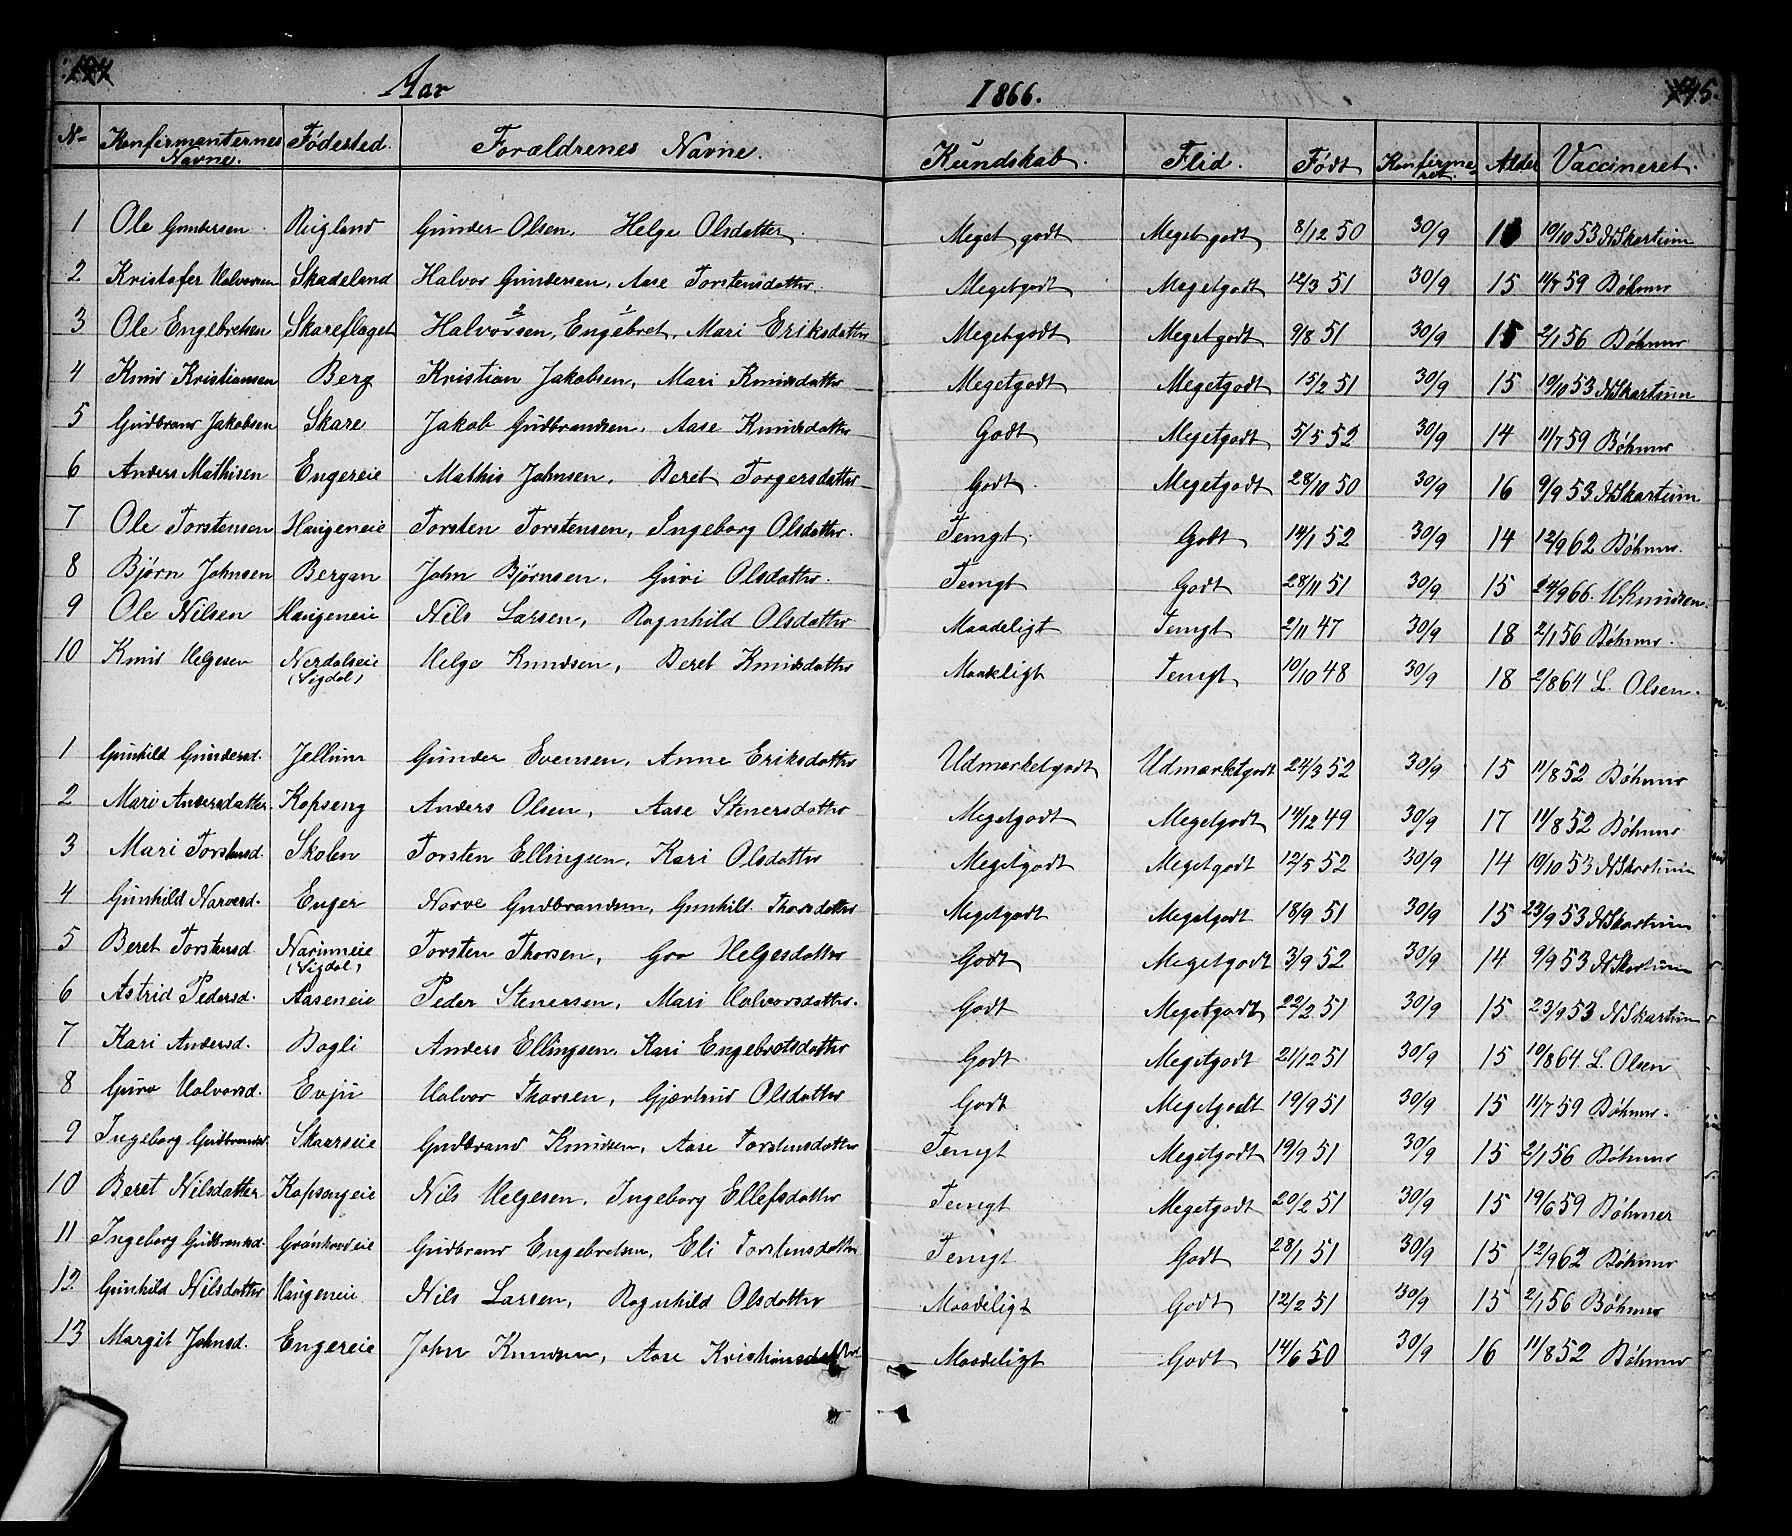 Aar 1866.
145.
No Konfirmanternes Navne. Födested. Forældrenes Navne. Kundskab. Flid. Födt Konfirmeret. Alder Vaccineret.
1 Ole Gundersen Rugland Gunder Olsen, Helge Olsdatter. Meget godt Meget godt 8/12 50 30/9 10/10 53 N Skartum
2 Kristofer Halvorsen Skadeland Halvor Gundersen, Aase Torstensdatter. Megetgodt Megetgodt 12/3 51 30/9 15 11/7 59 Böhmer
3 Ole Engebretsen Skareflaget Halvorsen, Engebret, Mari Eriksdatter Megetgodt Megetgodt 9/8 51 30/9 15 2/1 56 Böhmer
4 Knud Kristiansen Berg Kristian Jakobsen, Mari Knudsdatter Megetgodt Megetgodt 15/2 51 30/9 15 10/10 53 N Skartum
5 Gudbrand Jakobsen Skare Jakob Gudbrandsen, Aase Knudsdatter Godt Megetgodt 5/5 52 30/9 14 11/7 59 Böhmer
6 Anders Mathisen Engereie Mathis Johnsen, Beret Torgersdatter Godt Megetgodt 28/10 50 30/9 16 9/9 53 N Skartum
7 Ole Torstensen Haugeneie Torsten Torstensen, Ingeborg Olsdatter. Temgt Godt 14/1 52 30/9 14 12/9 62 Böhmer.
8 Björn Johnsen Bergan John Björnsen, Guri Olsdatter. Temgt Godt 28/11 51 30/9 15 24/9 66. Knudsen.
9 Ole Nilsen Haugeneie Nils Larsen, Ragnhild Olsdatter Maadeligt Temgt 2/11 47 30/9 18 2/1 56 Böhmer.
10 Knud Helgesen Nerdalseie Helge Knudsen, Beret Knudsdatter Maadeligt Temgt 10/10 48 30/9 18 2/8 64 L. Olsen.
(Sigdal)
1 Gunhild Gundersd. Jellum Gunder Evensen, Anne Eriksdatter Udmærketgodt Udmærketgodt 24/3 52 30/9 15 11/8 52 Böhmer
2 Mari Andersdatter Kopseng Anders Olsen, Aase Stenersdatter Megetgodt Megetgodt 14/12 49 30/9 17 11/8 52 Böhmer
3 Mari Torstensd. Skolen Torsten Ellingsen, Kari Olsdatter Megetgodt Megetgodt 12/5 52 30/9 14 10/10 53 N Skartum
4 Gunhild Narvesd. Enger Narve Gudbrandsen, Gunhild Thorsdatter Megetgodt Megetgodt 18/9 51 30/9 15 23/9 53 N Skartum
5 Beret Torstensd Narumeie Torsten Thorsen, Gro Helgesdatter Godt Megetgodt 3/9 52 30/9 14 9/9 53 N Skartum
(Sigdal)
6 Astrid Pedersd. Aaseneie Peder Stenersen, Mari Halvorsdatter. Godt Megetgodt 22/2 51 30/9 15 23/9 53 N Skartum
7 Kari Andersd. Bagli Anders Ellingsen, Kari Engebretsdatter Godt Megetgodt 21/12 51 30/9 15 10/8 64 L. Olsen
8 Guro Halvorsd. Evju Halvor Thorsen, Gjærtrud Olsdatter Godt Megetgodt 19/9 51 30/9 15 11/7 59 Böhmer.
9 Ingeborg Gudbrandsd Skarseie Gudbrand Knudsen, Aase Torstensdatter Temgt Megetgodt 19/9 51 30/9 15 2/1 56 Böhmer
10 Beret Nilsdatter Kopsengeie Nils Helgesen, Ingeborg Ellefsdatter Temgt Megetgodt 20/2 51 30/9 15 19/6 59 Böhmer
11 Ingeborg Gudbrandsd. Grönhovdeie Gudbrand Engebretsen, Eli Torstensdatter Temgt Godt 28/1 51 30/9 15 12/9 62 Böhmer
12. Gunhild Nilsdatter Haugeneie Nils Larsen, Ragnhild Olsdatter Maadeligt Godt 12/2 51 30/9 15 2/1 56 Böhmer
13 Margit Johnsd. Engereie John Knudsen, Aase Kristiansdatter Maadeligt Godt 14/6 50 30/9 16 11/8 52 Böhmer